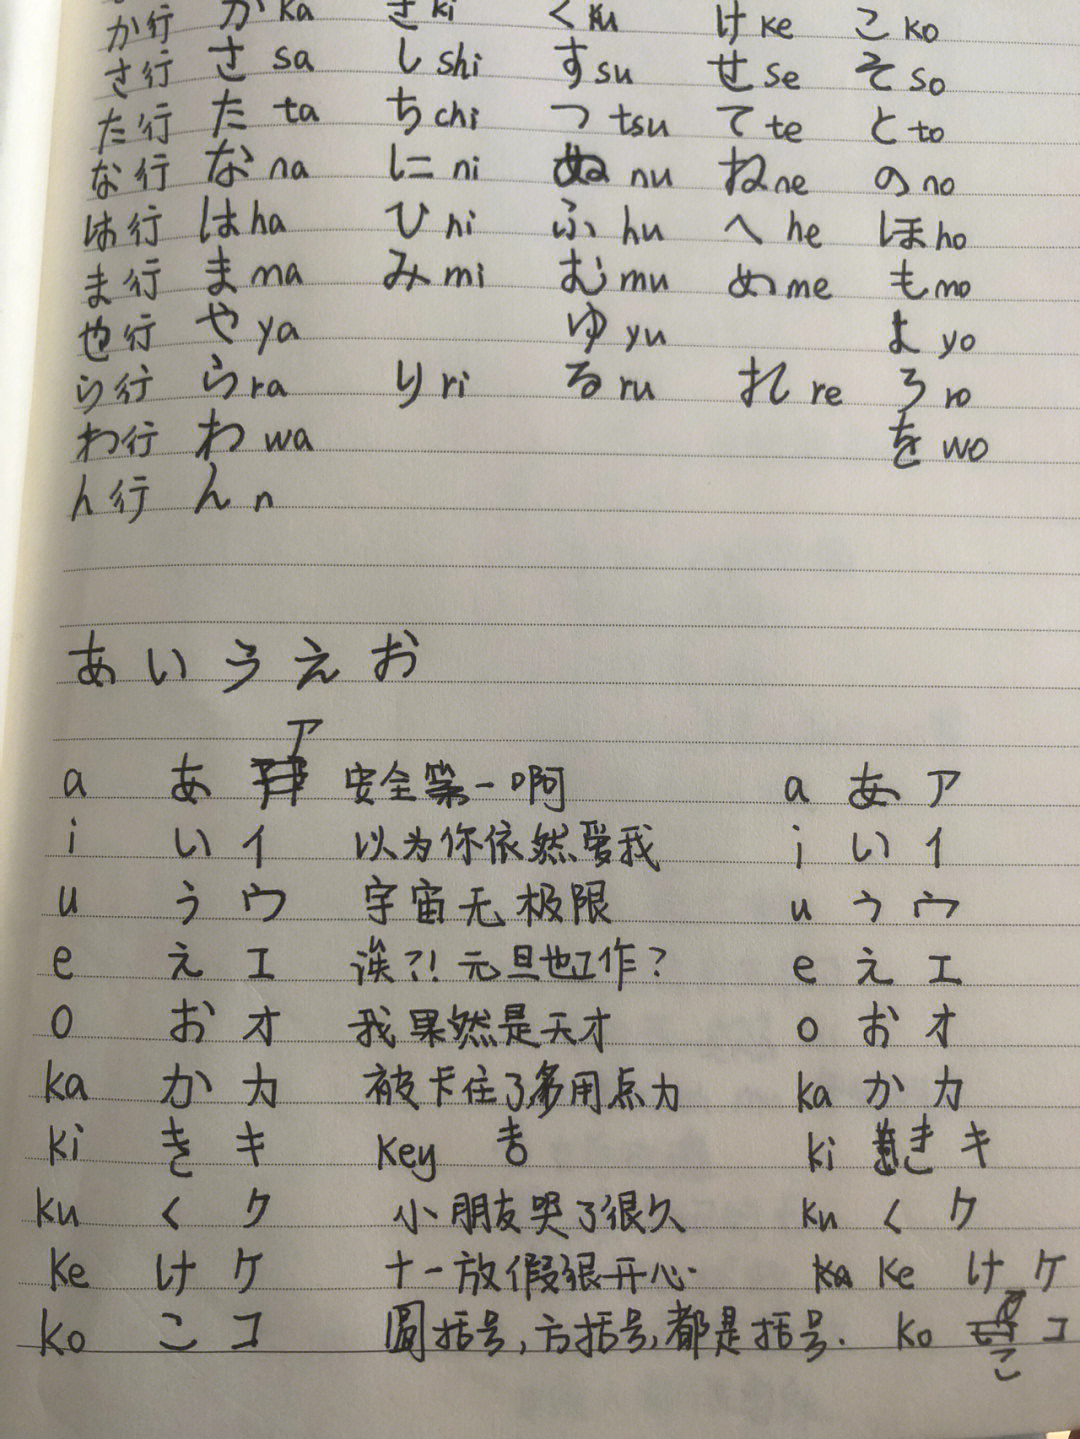 か行 か ka き ki く ku け ke こ ko
さ行 さ sa し shi す su せ se そ so
た行 た ta ち chi つ tsu て te と to
な行 な na に ni ぬ nu ね ne の no
は行 は ha ひ hi ふ hu へ he ほ ho
ま行 ま ma み mi む mu め me も mo
也行 や ya ゆ yu よ yo
ら行 ら ra り ri る ru れ re ろ ro
わ行 わ wa を wo
ん行 ん n
あいうえお
a あ ア 安全第一啊 a あ ア
i い イ 以为你依然爱我 i い イ
u う ウ 宇宙无极限 u う ウ
e え エ 诶?!元旦也工作? e え エ
o お オ 我果然是天才 o お オ
ka か カ 被卡住了多用点力 ka か カ
ki き キ key ki き キ
ku く ク 小朋友哭了很久 ku く ク
ke け ケ 十一放假很开心. ke け ケ
ko こ コ 圆括号,方括号,都是括号. ko こ コ